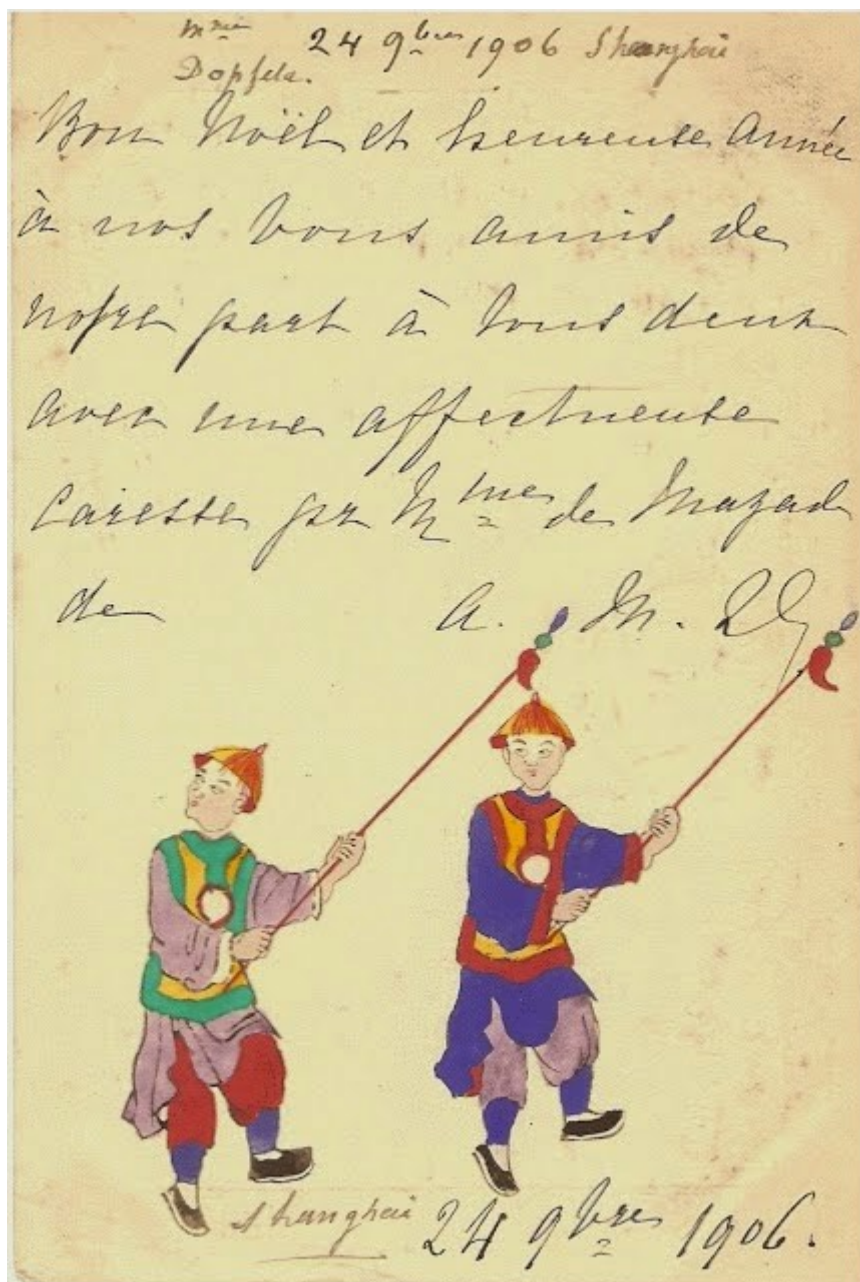 24 9bres 1906 Shanghai
Bon Noël et heureuse Année
à nos bons amis de
notre part à tous deux
avec une affectueuse
Caresse pr Mme de Mazade
de A. M.
Shanghai 24 9bres 1906.